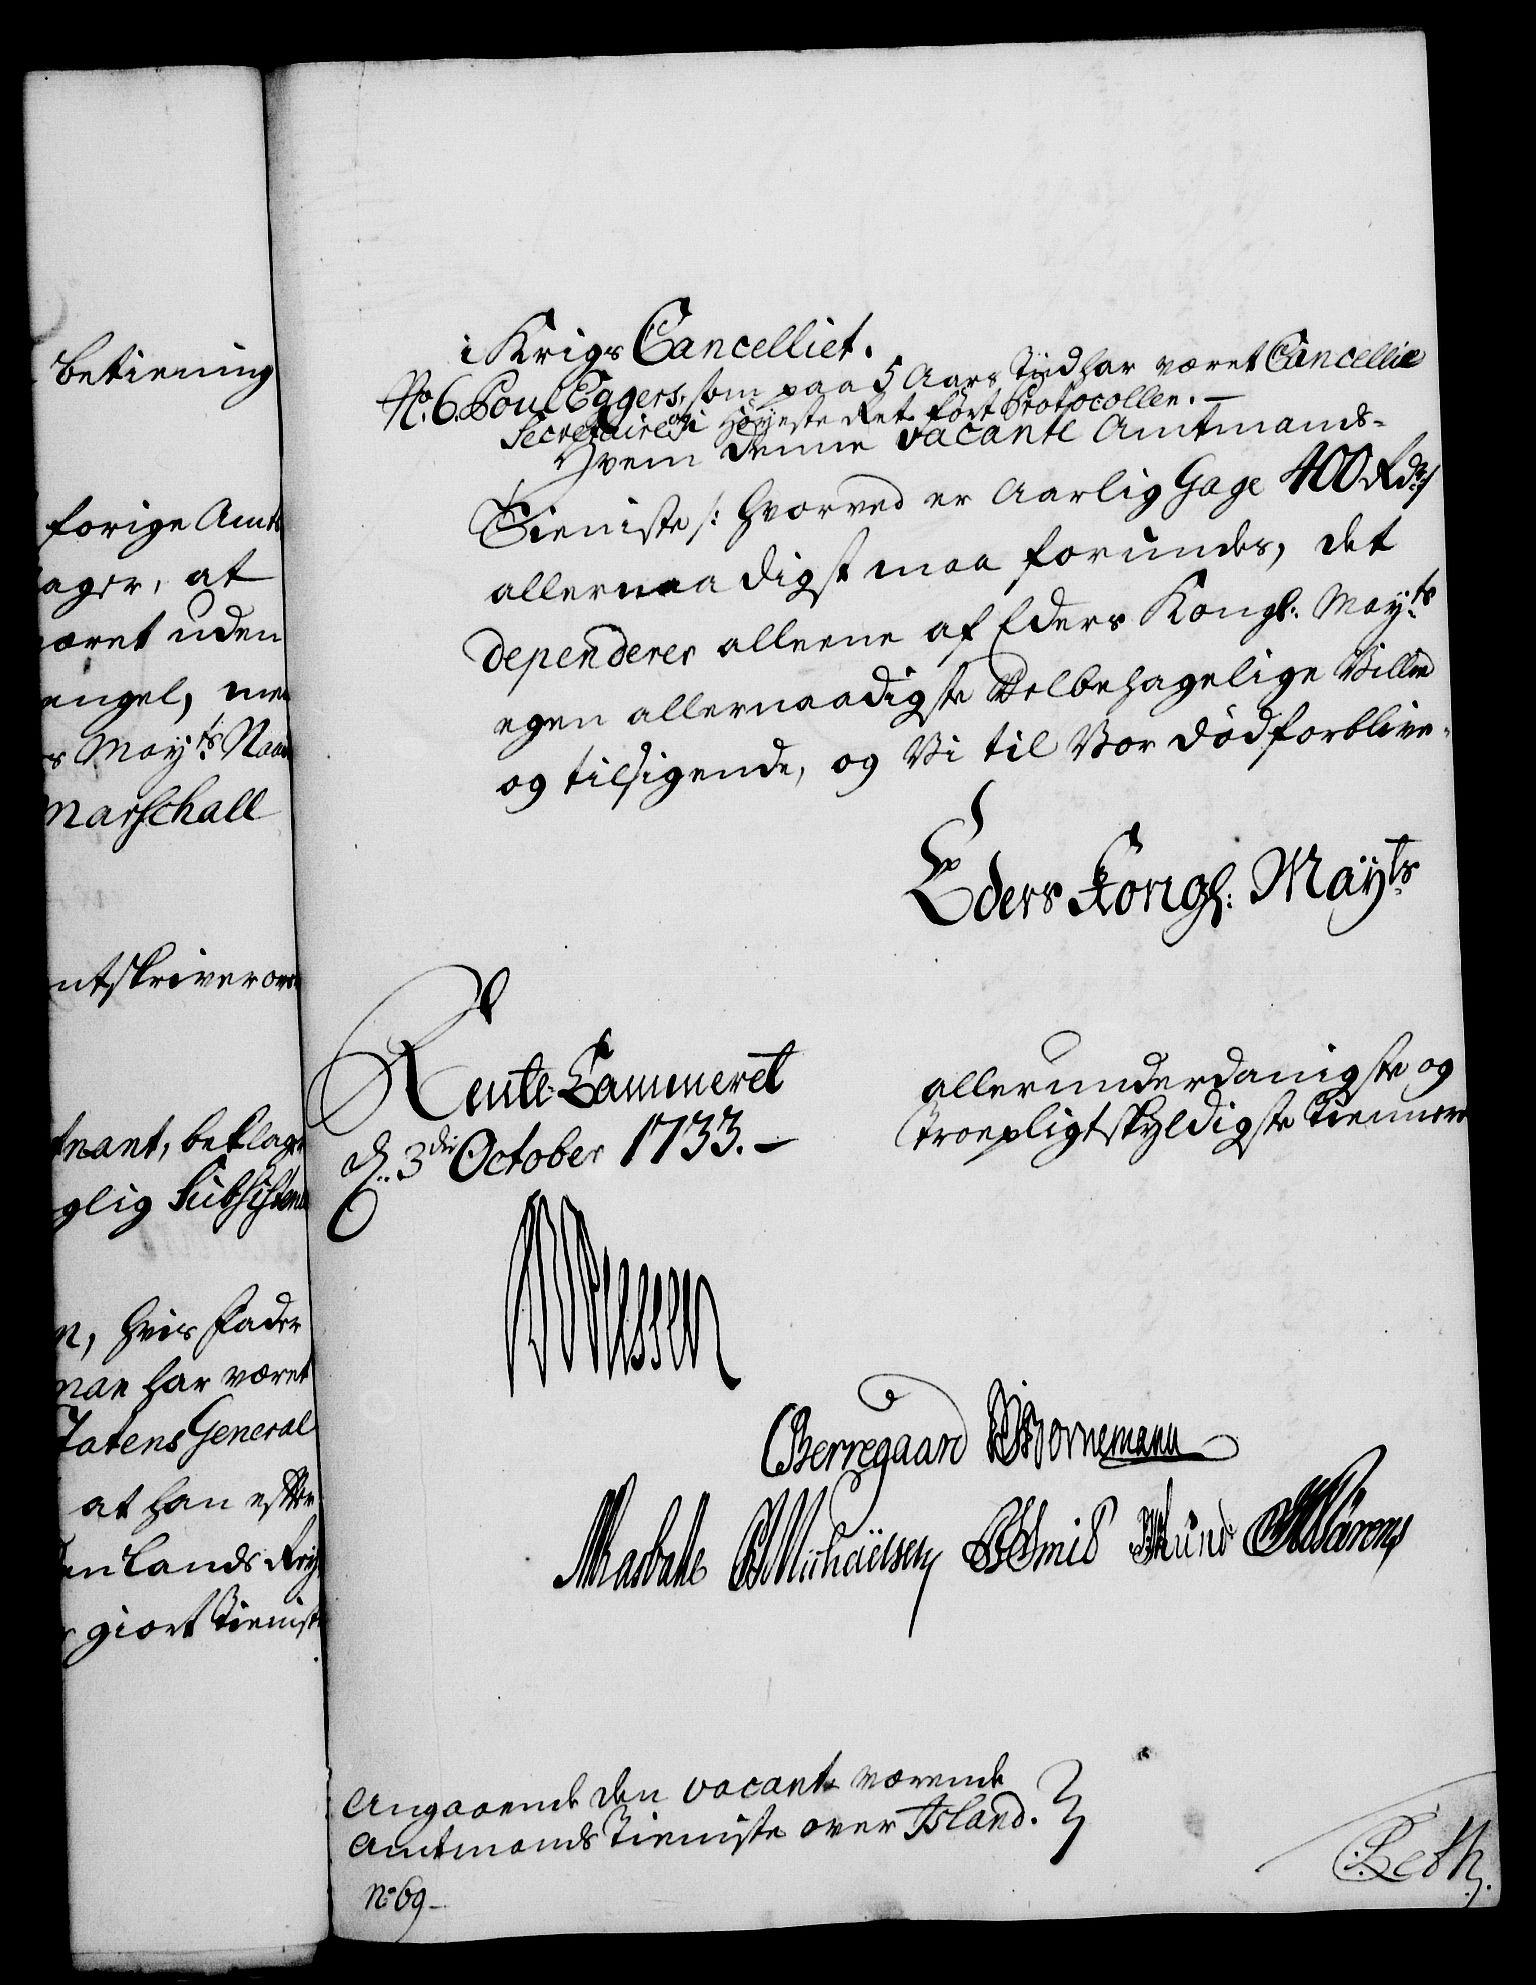 betiening
forige Amt
ager, at
været uden
engel, men
s Mayts Naad
Marschall
ntskriver
tnant, beklager
glig Subsistence
n, hvis Fader
man har været
Statens General
at han efter
giort Tieniste
i Krigs Cancelliet.
No. 6. Poul Eggers, som paa 5 Aars Tiid har været Cancellie
Secretaire i Høyeste Ret ført Protocollen. —
Hvem denne vacante Amtmands-
Tieniste /: hvorved er Aarlig Gage 400 Rdr :/
allernaadigst maa forundes, det
dependerer alleene af Eders Kongl: Mayts
egen allernaadigste Velbehagelige Villie
og tilsigende, og Vi til Vor Død forblive-
Eders Kongl: Mayts
Rente Cammeret
d. 3die October 1733. —
allerunderdanigste og
Troepligtskyldigste Tiennere
Berregaard Bornemann
Michaelsen Smid Kund
Angaaende den vacante værende
Amtmands Tieniste over Island.
No 69 —